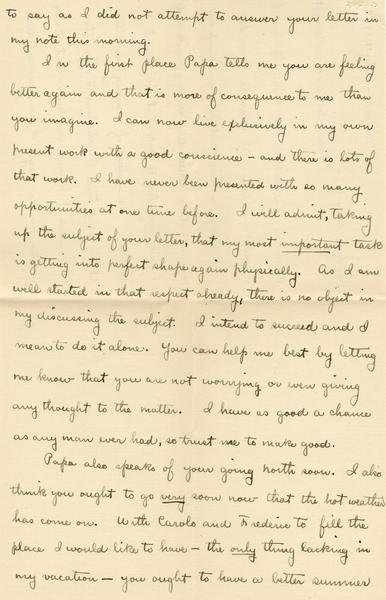 to say as I did not attempt to answer your letter in
my note this morning.
In the first place Papa tells me you are feeling
better again and that is more of consequence to me than
you imagine. I can now live exclusively in my own
present work with a good conscience – and there is lots of
that work. I have never been presented with so many
opportunities at one time before. I will admit, taking
up the subject of your letter, that my most important task
is getting into perfect shape again physically. As I am
well started in that respect already, there is no object in
my discussing the subject. I intend to succeed and I
mean to do it alone. You can help me best by letting
me know that you are not worrying or even giving
any thought to the matter. I have as good a chance
as any man ever had, so trust me to make good.
Papa also speaks of your going north soon. I also
think you ought to go very soon now that the hot weather
has come on. With Carols and Frederic to fill the
place I would like to have – the only thing lacking in
my vacation – you ought to have a better summer